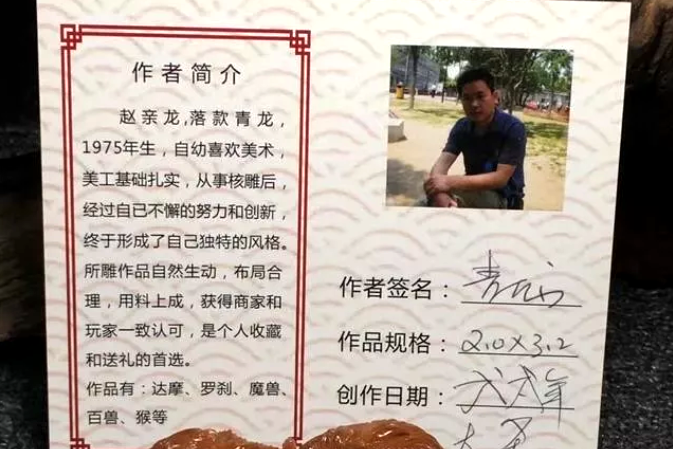 作者简介
赵亲龙,落款青龙，
1975年生，自幼喜欢美术，
美工基础扎实，从事核雕后，
经过自己不懈的努力和创新，
终于形成了自己独特的风格。
所雕作品自然生动，布局合
理，用料上成，获得商家和
玩家一致认可，是个人收藏
和送礼的首选。
作品有：达摩、罗刹、魔兽、
百兽、猴等
作者签名：青龙
作品规格：2.0×3.2
创作日期：戊戌年